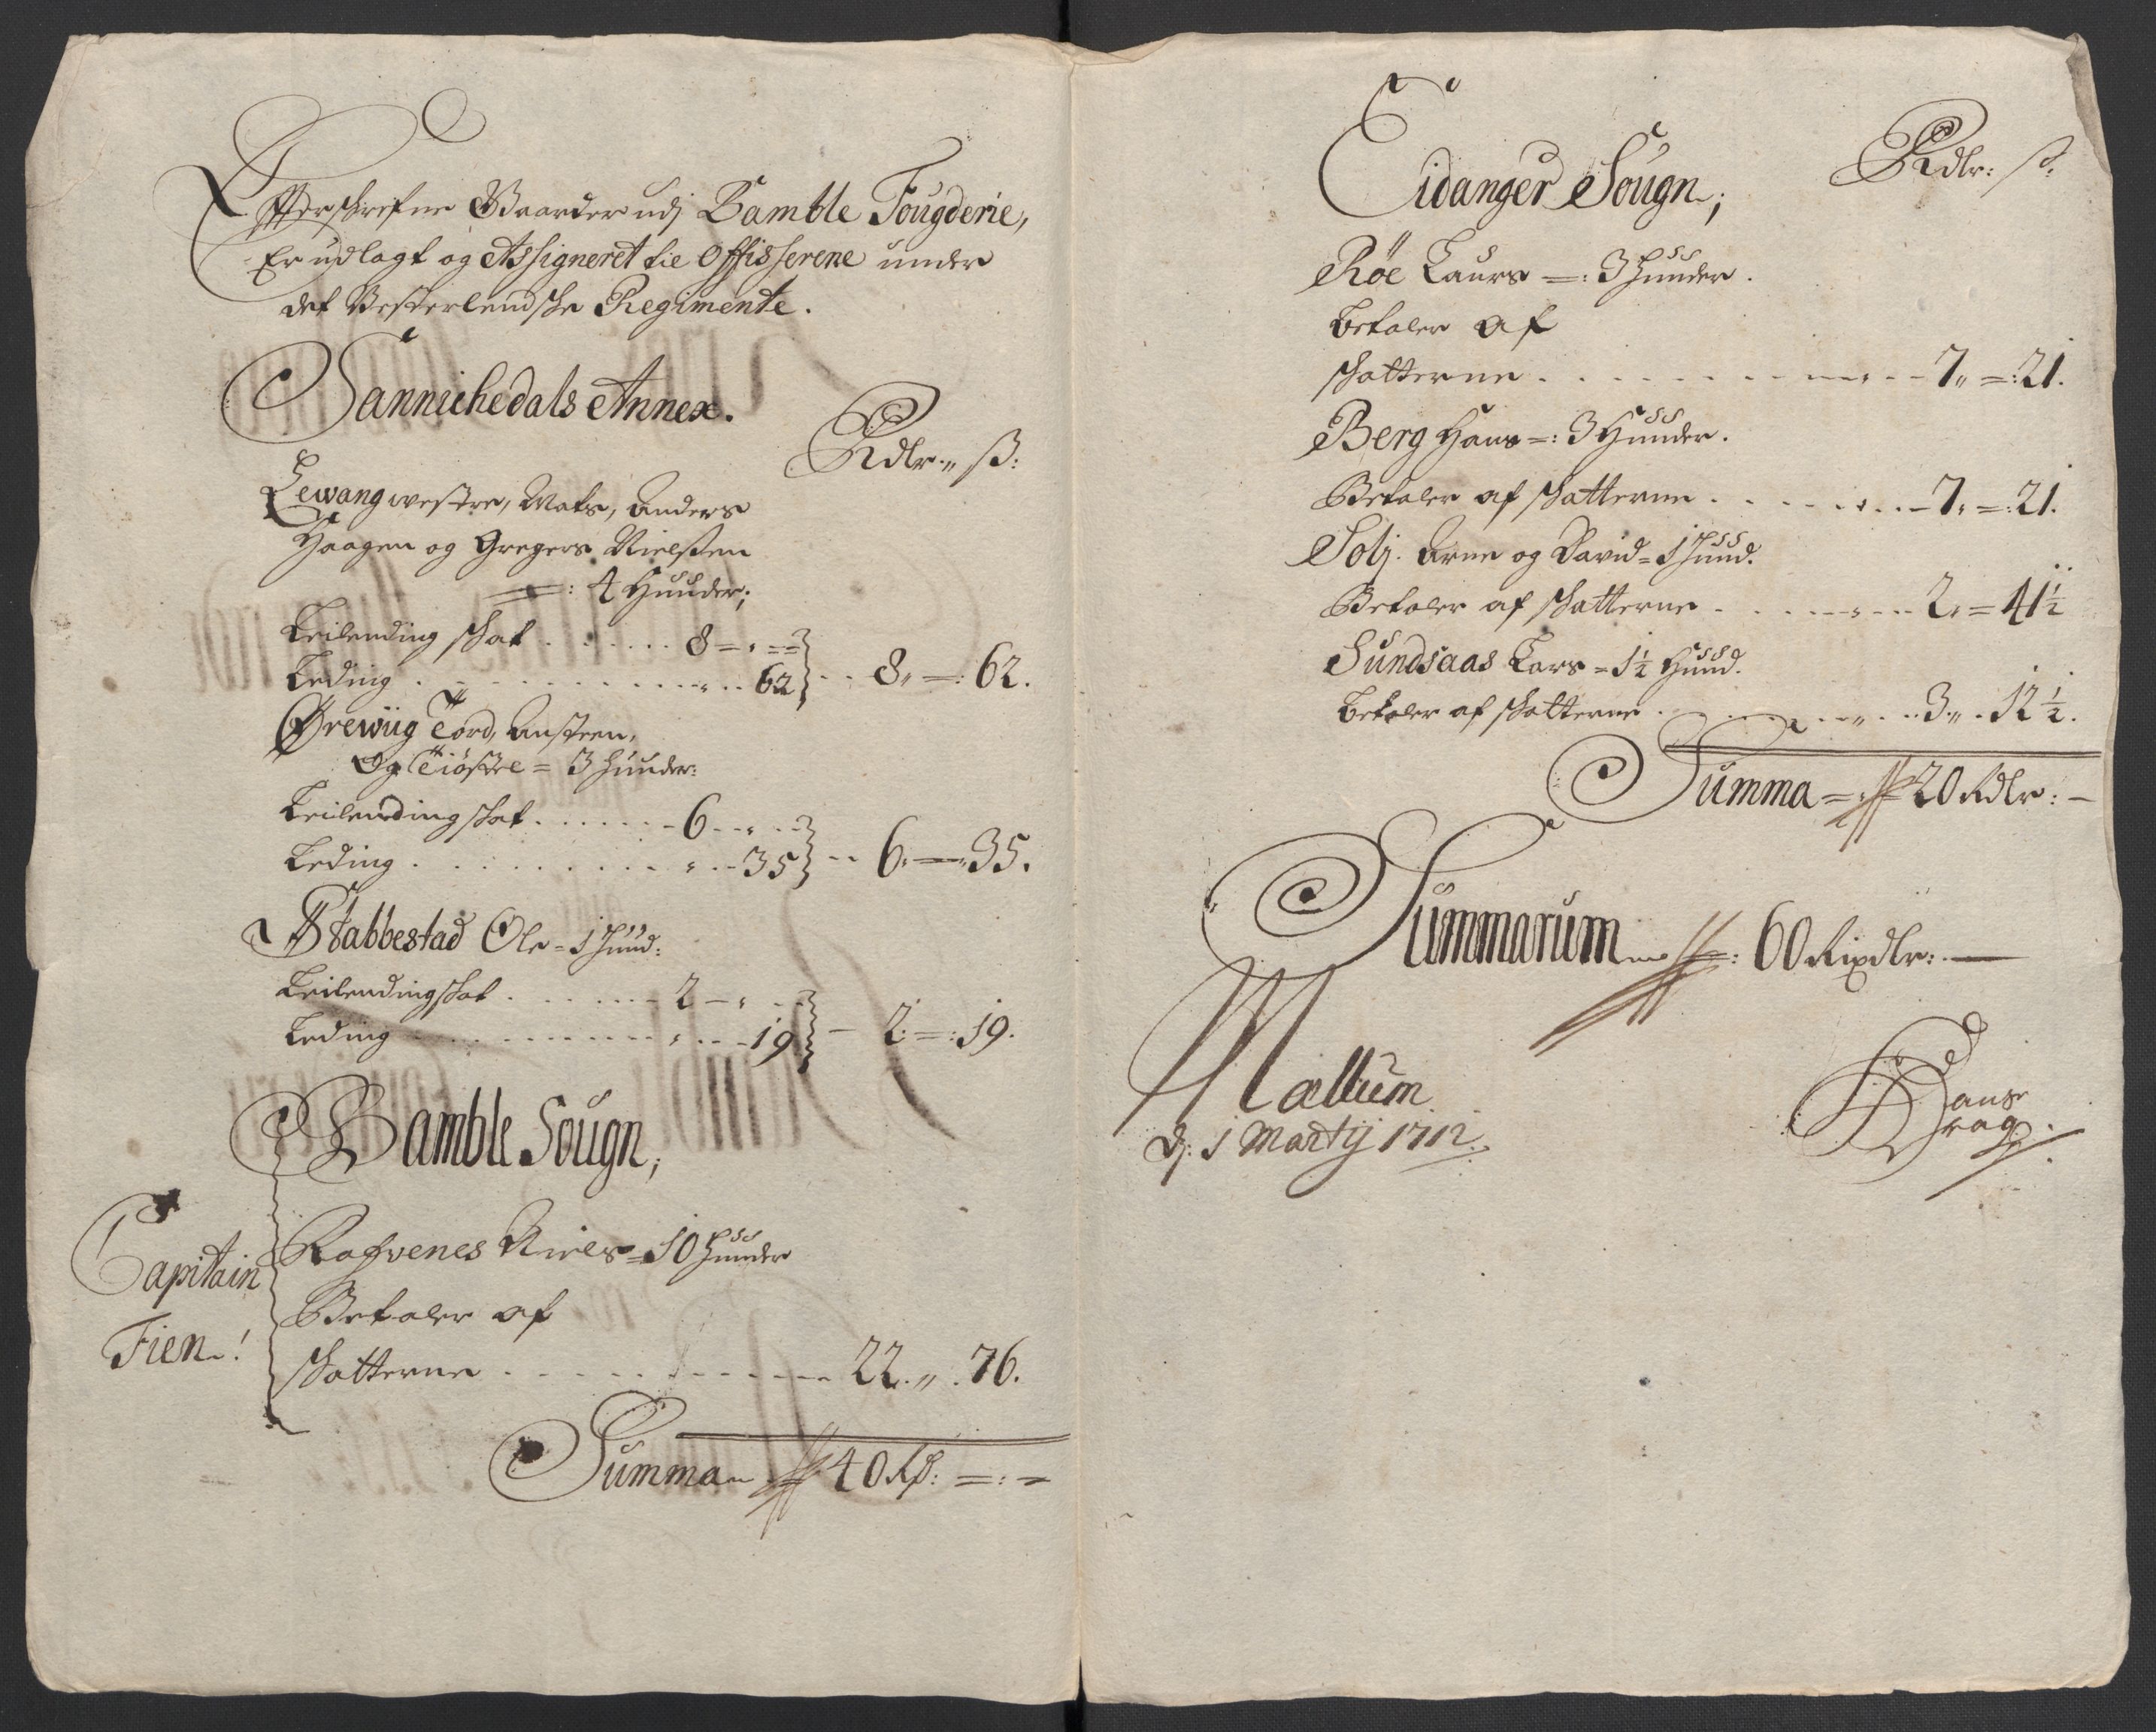 Efterschrefne Gaarder udj Bamble Fougderie,
Er udlagt og Assigneret tie Offisserene under
det Vesterlendske Regimente.
Sannichedals Annex.
Rdlr " ß:
Lewang westre, Mats, Anders
Haagen og Gregers Nielssen
=: 4 Hunder;
Leilending skat . . . . . 8 = " ==
Leding . . . . . . . . " . . 62 } - - 8 " =: 62.
Ørewiig Tord, Austeen,
Og Tiøstel = 3 Hunder:
Leilending skat . . . . . . 6 - - " - -
Leding . . . . . . . . " - - 35 } - - 6 " = " 35.
Stabbestad Ole = 1 Hund:
Leilending skat . . . . . . 2 - " - -
Leding . . . . . . . . " - - 19 } - 2: =: 19.
Bamble Sougn;
Capitain
Fien!
Rafvenes Niels = 10 Hunder
Betaler af
skatterne . . . . . . . . 22 . " . 76.
Summa 40 Rd: =: =
Eidanger Sougn;
Rdlr: ß:
Røe Laurs =: 3 Hunder.
Betaler af
skatterne . . . . . . . . 7 " =: 21.
Berg Hans =: 3 Hunder.
Betaler af skatterne . . . . . . 7 " =: 21.
Solj. Arne og David = 1 Hund.
Betaler af skatterne . . . . . . 2 " = 41½
Sundsaas Lars = 1½ Hund.
Betaler af skatterne . . . . . . 3 " . 12½.
Summa = 20 Rdlr: -
Summarum =: 60 Rixdlr: -
Mællum
D: 1 Martij 1712.
Hans
Drag.